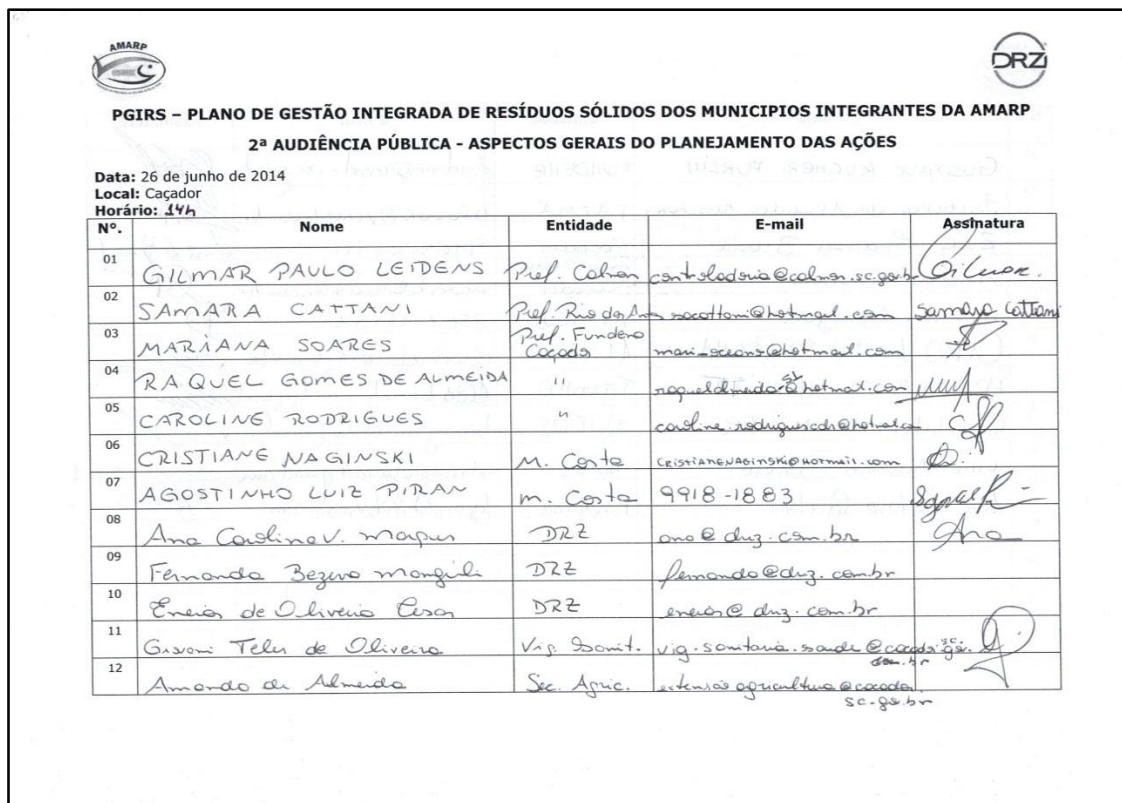 AMARP
DRZ
PGIRS – PLANO DE GESTÃO INTEGRADA DE RESÍDUOS SÓLIDOS DOS MUNICIPIOS INTEGRANTES DA AMARP
2ª AUDIÊNCIA PÚBLICA - ASPECTOS GERAIS DO PLANEJAMENTO DAS AÇÕES
Data: 26 de junho de 2014
Local: Caçador
Horário: 14h
Nº. Nome Entidade E-mail Assinatura
01 GILMAR PAULO LEIDENS Pref. Calmon controladoria@calmon.sc.gov.br Gilmar.
02 SAMARA CATTANI Pref. Rio das Antas sacattani@hotmail.com Samara Cattani
03 MARIANA SOARES Pref. Fundema Caçador mari_soares@hotmail.com
04 RAQUEL GOMES DE ALMEIDA "
05 CAROLINE RODRIGUES " caroline.rodriguescdr@hotmail.com
06 CRISTIANE NAGINSKI M. Costa CRISTIANENAGINSKI@HOTMAIL.COM
07 AGOSTINHO LUIZ PIRAN M. Costa 9918-1883
08 Ana Carolina V. DRZ ana@drz.com.br Ana
09 Fernanda Bezerra DRZ fernanda@drz.com.br
10 Eneias de Oliveira Cesar DRZ eneias@drz.com.br
11 Giovani Teles de Oliveira Vig. Sanit. vig.sanitaria.saude@cacador.sc.gov.br
12 Amanda de Almeida Sec. Agric. extensao agricultura@cacador.
sc.gov.br